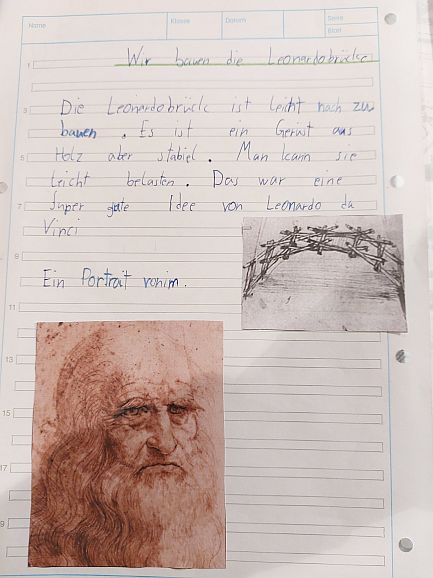 Name Klasse Datum Seite
Blatt
1 Wir bauen die Leonardobrücke
3 Die Leonardobrück ist leicht nach zu
bauen . Es ist ein Gerüst aus
5 Holz aber stabiel . Man kann sie
leicht belasten . Das war eine
7 Super gute Idee von Leonardo da
Vinci
9
Ein Portrait vonim .
11
13
15
17
9